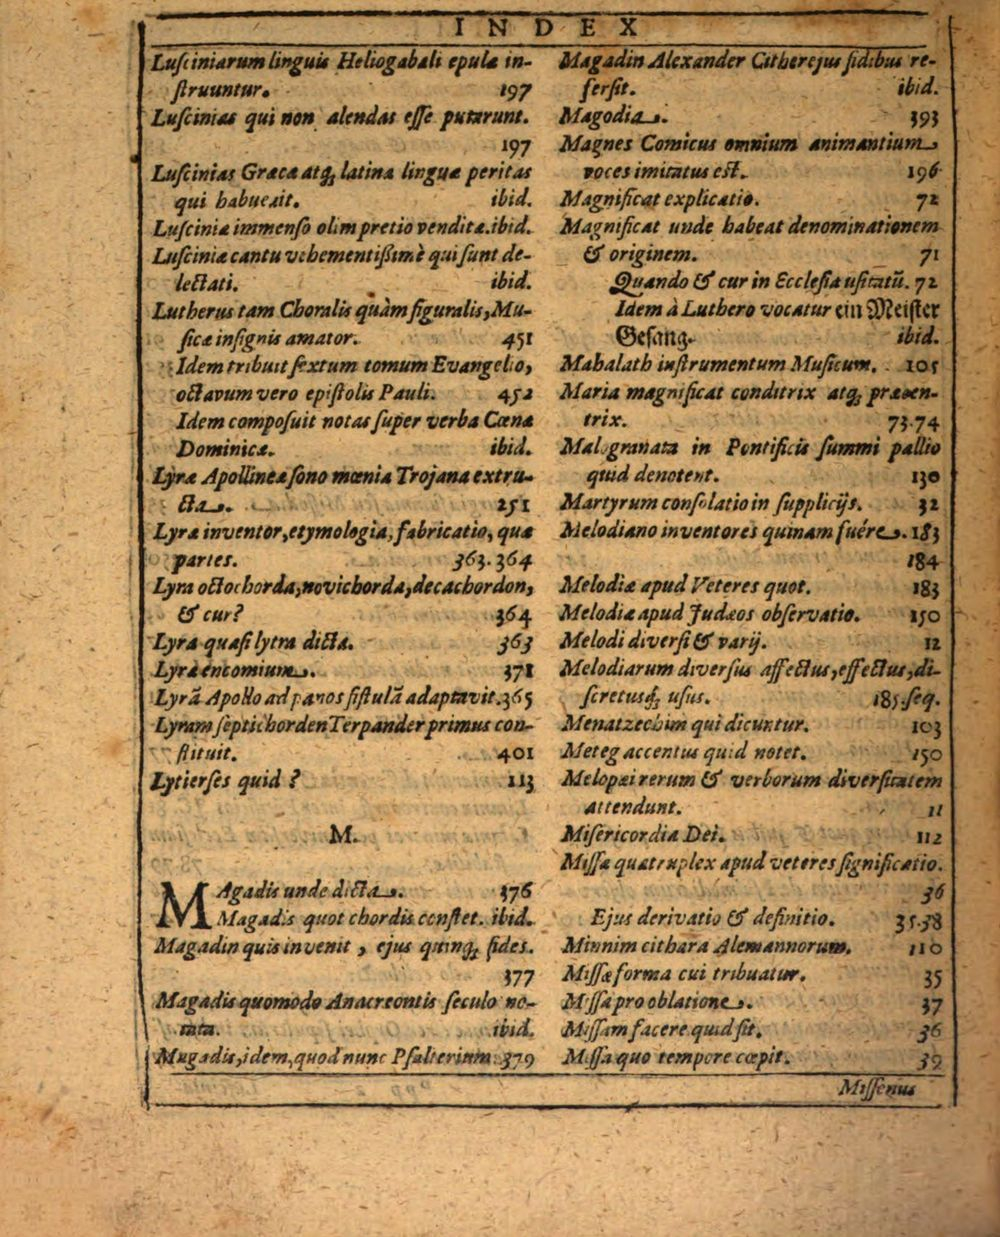 INDEX
Luſciniarum linguis Heliogabali epulæ in-
ſtruuntur. 197
Luſcinias qui non alendas eſſe putarunt.
197
Luſcinias Græca atq; latina linguæ peritas
qui habueait. ibid.
Luſciniæ immenſo olim pretio venditæ. ibid.
Luſciniæ cantu vehementißimè qui ſunt de-
lectati. ibid.
Lutherus tam Choralis quàm figuralis, Mu-
ſicæ inſignis amator. 451
Idem tribuit ſextum tomum Evangelio,
octavum vero epiſtolis Pauli. 452
Idem compoſuit notas ſuper verba Cœnæ
Dominicæ. ibid.
Lyræ Apollineæ ſono mœnia Trojana extru-
cta. 251
Lyræ inventor, etymologia, fabricatio, quæ
partes. 363. 364
Lyra octochorda, novichorda, decachordon,
& cur? 364
Lyra quaſi lytra dicta. 363
Lyræ encomium. 371
Lyrã Apollo ad panos fiſtulã adaptavit. 365
Lyram ſeptichorden Terpander primus con-
ſtituit. 401
Lytierſes quid? 113
M.
MAgadis unde dicta. 376
Magadis quot chordis conſtet. ibid.
Magadin quis invenit, ejus quinq; fides.
377
Magadis quomodo Anacreontis ſeculo no-
tata. ibid.
Magadis, idem, quod nunc Pſalterium. 379
Magadin Alexander Citherejus fidibus re-
ferſit. ibid.
Magodia. 393
Magnes Comicus omnium animantium
voces imitatus eſt. 196
Magnificat explicatio. 72
Magnificat unde habeat denominationem
& originem. 71
Quando & cur in Eccleſia uſitatũ. 72
Idem à Luthero vocatur ein Meiſter
Geſang. ibid.
Mahalath inſtrumentum Muſicum. 105
Maria magnificat conditrix atq; præcen-
trix. 73. 74
Malogranata in Pontificis ſummi pallio
quid denotent. 130
Martyrum conſolatio in ſupplicijs. 32
Melodiano inventores quinam fuére. 183
184
Melodiæ apud Veteres quot. 183
Melodiæ apud Judæos obſervatio. 150
Melodi diverſi & varij. 12
Melodiarum diverſus affectus, effectus, di-
ſcretusq; uſus. 185. ſeq.
Menatzechim qui dicuntur. 103
Meteg accentus quid notet. 150
Melopœi rerum & verborum diverſitatem
attendunt. 11
Miſericordia Dei. 112
Miſſæ quatruplex apud veteres ſignificatio.
36
Ejus derivatio & definitio. 35. 38
Minnim cithara Alemannorum. 110
Miſſæ forma cui tribuatur. 35
Miſſa pro oblatione. 37
Miſſam facere quid ſit. 36
Miſſa quo tempore cœpit. 39
Miſſenus